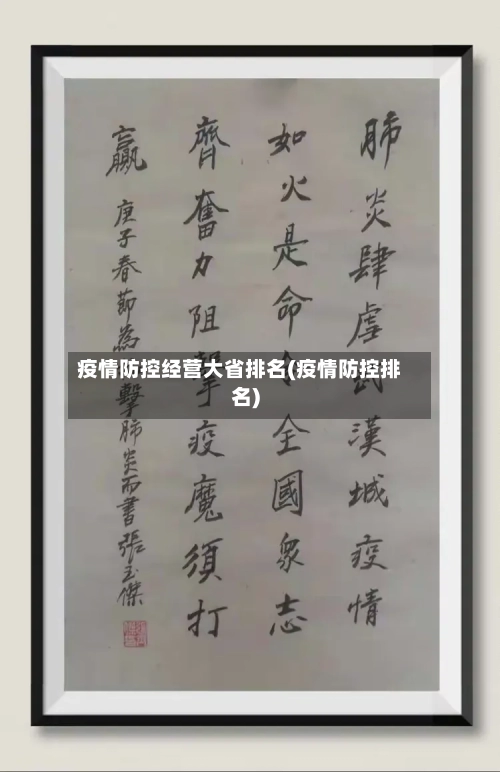 肺炎肆虐武漢城疫情
如火是命令全國衆志
齊奮力阻擊疫魔須打
贏 庚子春節為擊肺炎而書張玉傑
疫情防控经营大省排名(疫情防控排
名)